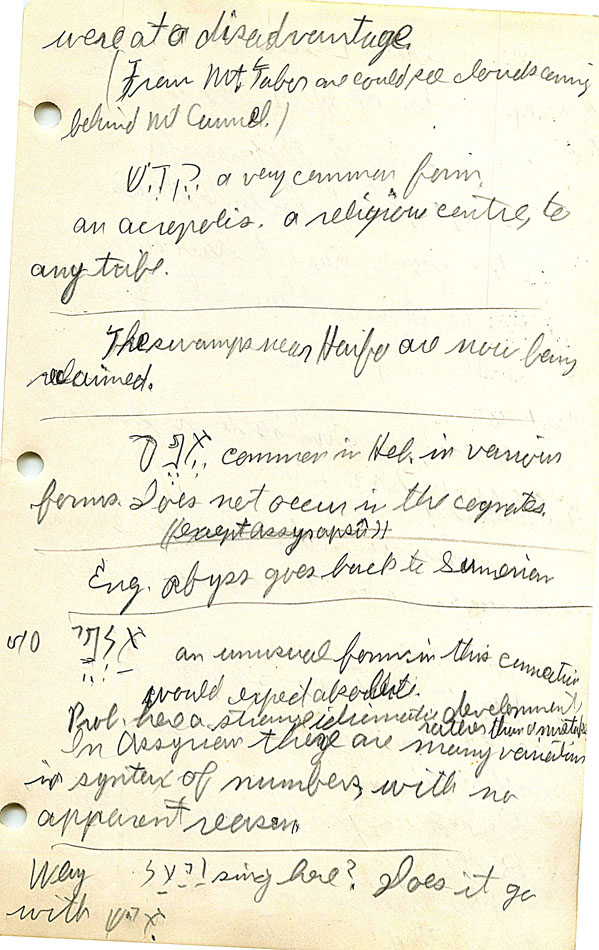 were at a disadvantage.
(From Mt. Tabor one could see clouds coming
behind Mt Carmel.)
a very common form,
an acropolis. a religious centre, to
any tribe.
The swamps near Haifa are now being
reclaimed.
אפס common in Heb. in various
forms. Does not occur in the cognates.
((except Assyr apsû))
Eng. abyss goes back to Sumerian
5/0 אלפי an unusual form in this connection
would expect absolute.
Prob. has a strange idiomatic development,
rather than a mistake
In Assyrian there are many variations
in syntax of numbers, with no
apparent reason.
Why sing here? Does it go
with איש